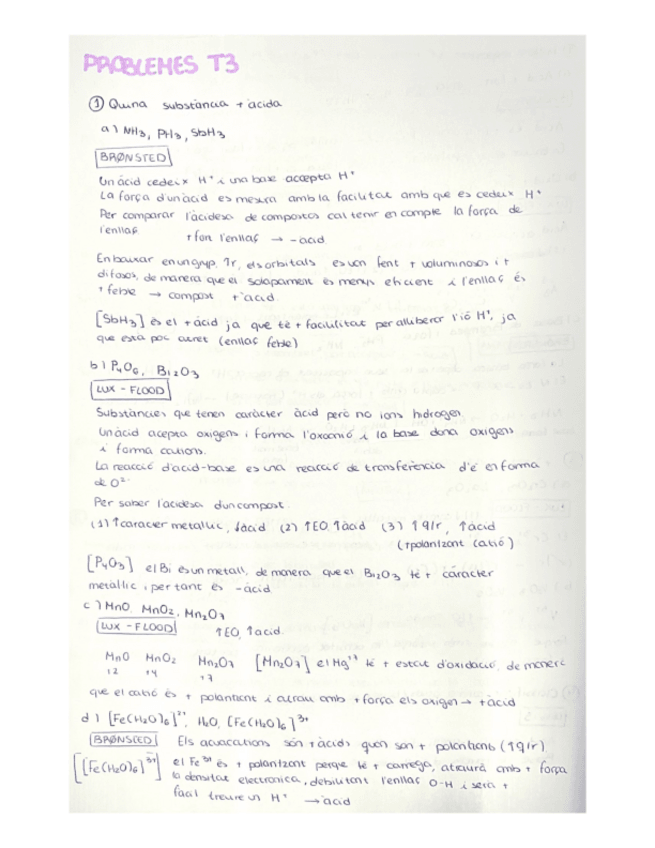 PROBLEMES T3
① Quina substància + àcida
a) NH₃, PH₃, SbH₃
BRØNSTED
Un àcid cedeix H⁺ i una base accepta H⁺
La força d'un àcid es mesura amb la facilitat amb que es cedeix H⁺
Per comparar l'acidesa de compostos cal tenir en compte la força de
l'enllaç + fort l'enllaç → - àcid
En baixar en un grup, ↑r, els orbitals es van fent + voluminosos i +
difosos, de manera que el solapament és menys eficient i l'enllaç és
+ feble → compost + àcid.
[SbH₃] és el + àcid ja que té + facilitat per alliberar l'ió H⁺, ja
que està poc atret (enllaç feble)
b) P₄O₆, Bi₂O₃
LUX - FLOOD
Substàncies que tenen caràcter àcid però no ions hidrogen.
Un àcid accepta oxigens i forma l'oxoanió i la base dona oxigens
i forma cations.
La reacció d'àcid-base és una reacció de transferència d'e⁻ en forma
de O²⁻
Per saber l'acidesa d'un compost.
(1) ↑caràcter metàl·lic, ↓àcid (2) ↑EO, ↑àcid (3) ↑q/r, ↑àcid
(+polaritzant catió)
[P₄O₃] el Bi és un metall, de manera que el Bi₂O₃ té + caràcter
metàl·lic i per tant és - àcid
c) MnO, MnO₂, Mn₂O₇
LUX - FLOOD ↑EO, ↑àcid.
MnO MnO₂ Mn₂O₇ [Mn₂O₇] el Mg⁷⁺ té + estat d'oxidació, de manera
+2 +4 +7
que el catió és + polaritzant i atrau amb + força els oxigen → + àcid
d) [Fe(H₂O)₆]²⁺, H₂O, [Fe(H₂O)₆]³⁺
BRØNSTED Els aquacations són + àcids quan són + polaritzants (↑q/r)
[[Fe(H₂O)₆]³⁺] el Fe³⁺ és + polaritzant perquè té + càrrega, atraurà amb + força
la densitat electrònica, debilitant l'enllaç O-H i serà +
fàcil treure un H⁺ → àcid